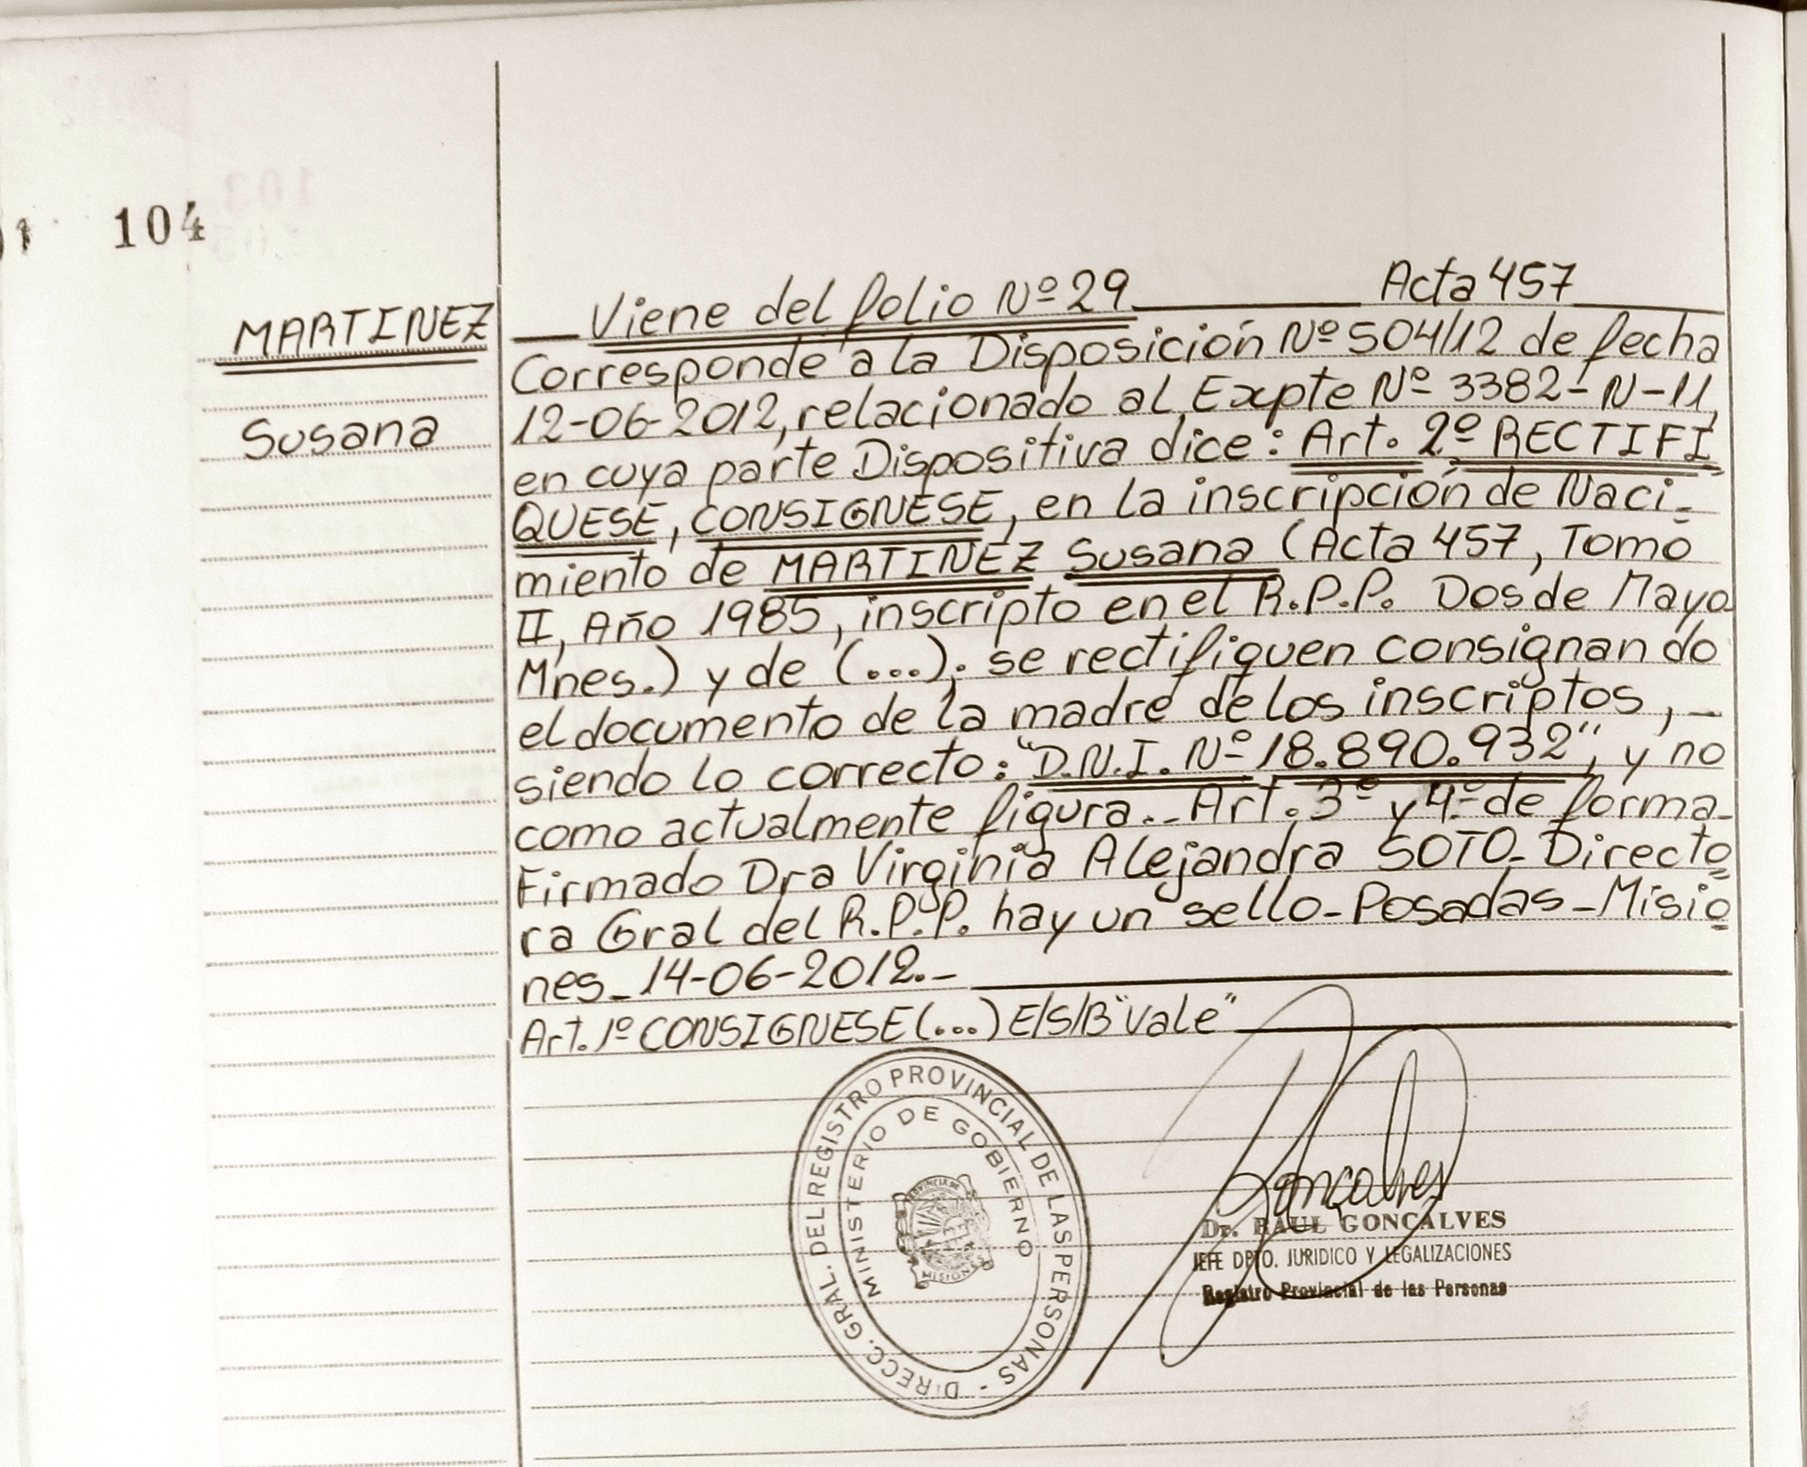 104
MARTINEZ
Susana
Viene del folio Nº 29 Acta 457
Corresponde a la Disposición Nº 504/12 de fecha
12-06-2012, relacionado al Expte Nº 3382-N-11,
en cuya parte Dispositiva dice: Art. 2º RECTIFI
QUESE, CONSIGNESE, en la inscripción de Naci-
miento de MARTINEZ Susana (Acta 457, Tomo
II, Año 1985, inscripto en el R.P.P. Dos de Mayo
Mnes.) y de (...); se rectifiquen consignando
el documento de la madre de los inscriptos, -
siendo lo correcto: "D.N.I. Nº 18.890.932", y no
como actualmente figura.- Art. 3º y 4º de forma-
Firmado Dra Virginia Alejandra SOTO- Directo
ra Gral del R.P.P. hay un sello- Posadas - Misio
nes- 14-06-2012.-
Art. 1º CONSIGNESE (...) E/S/B "Vale"
DIRECC. GRAL. DEL REGISTRO PROVINCIAL DE LAS PERSONAS -
MINISTERIO DE GOBIERNO
PROVINCIA DE
MISIONES
Goncalves
Dr. RAUL GONCALVES
JEFE DPTO. JURIDICO Y LEGALIZACIONES
Registro Provincial de las Personas